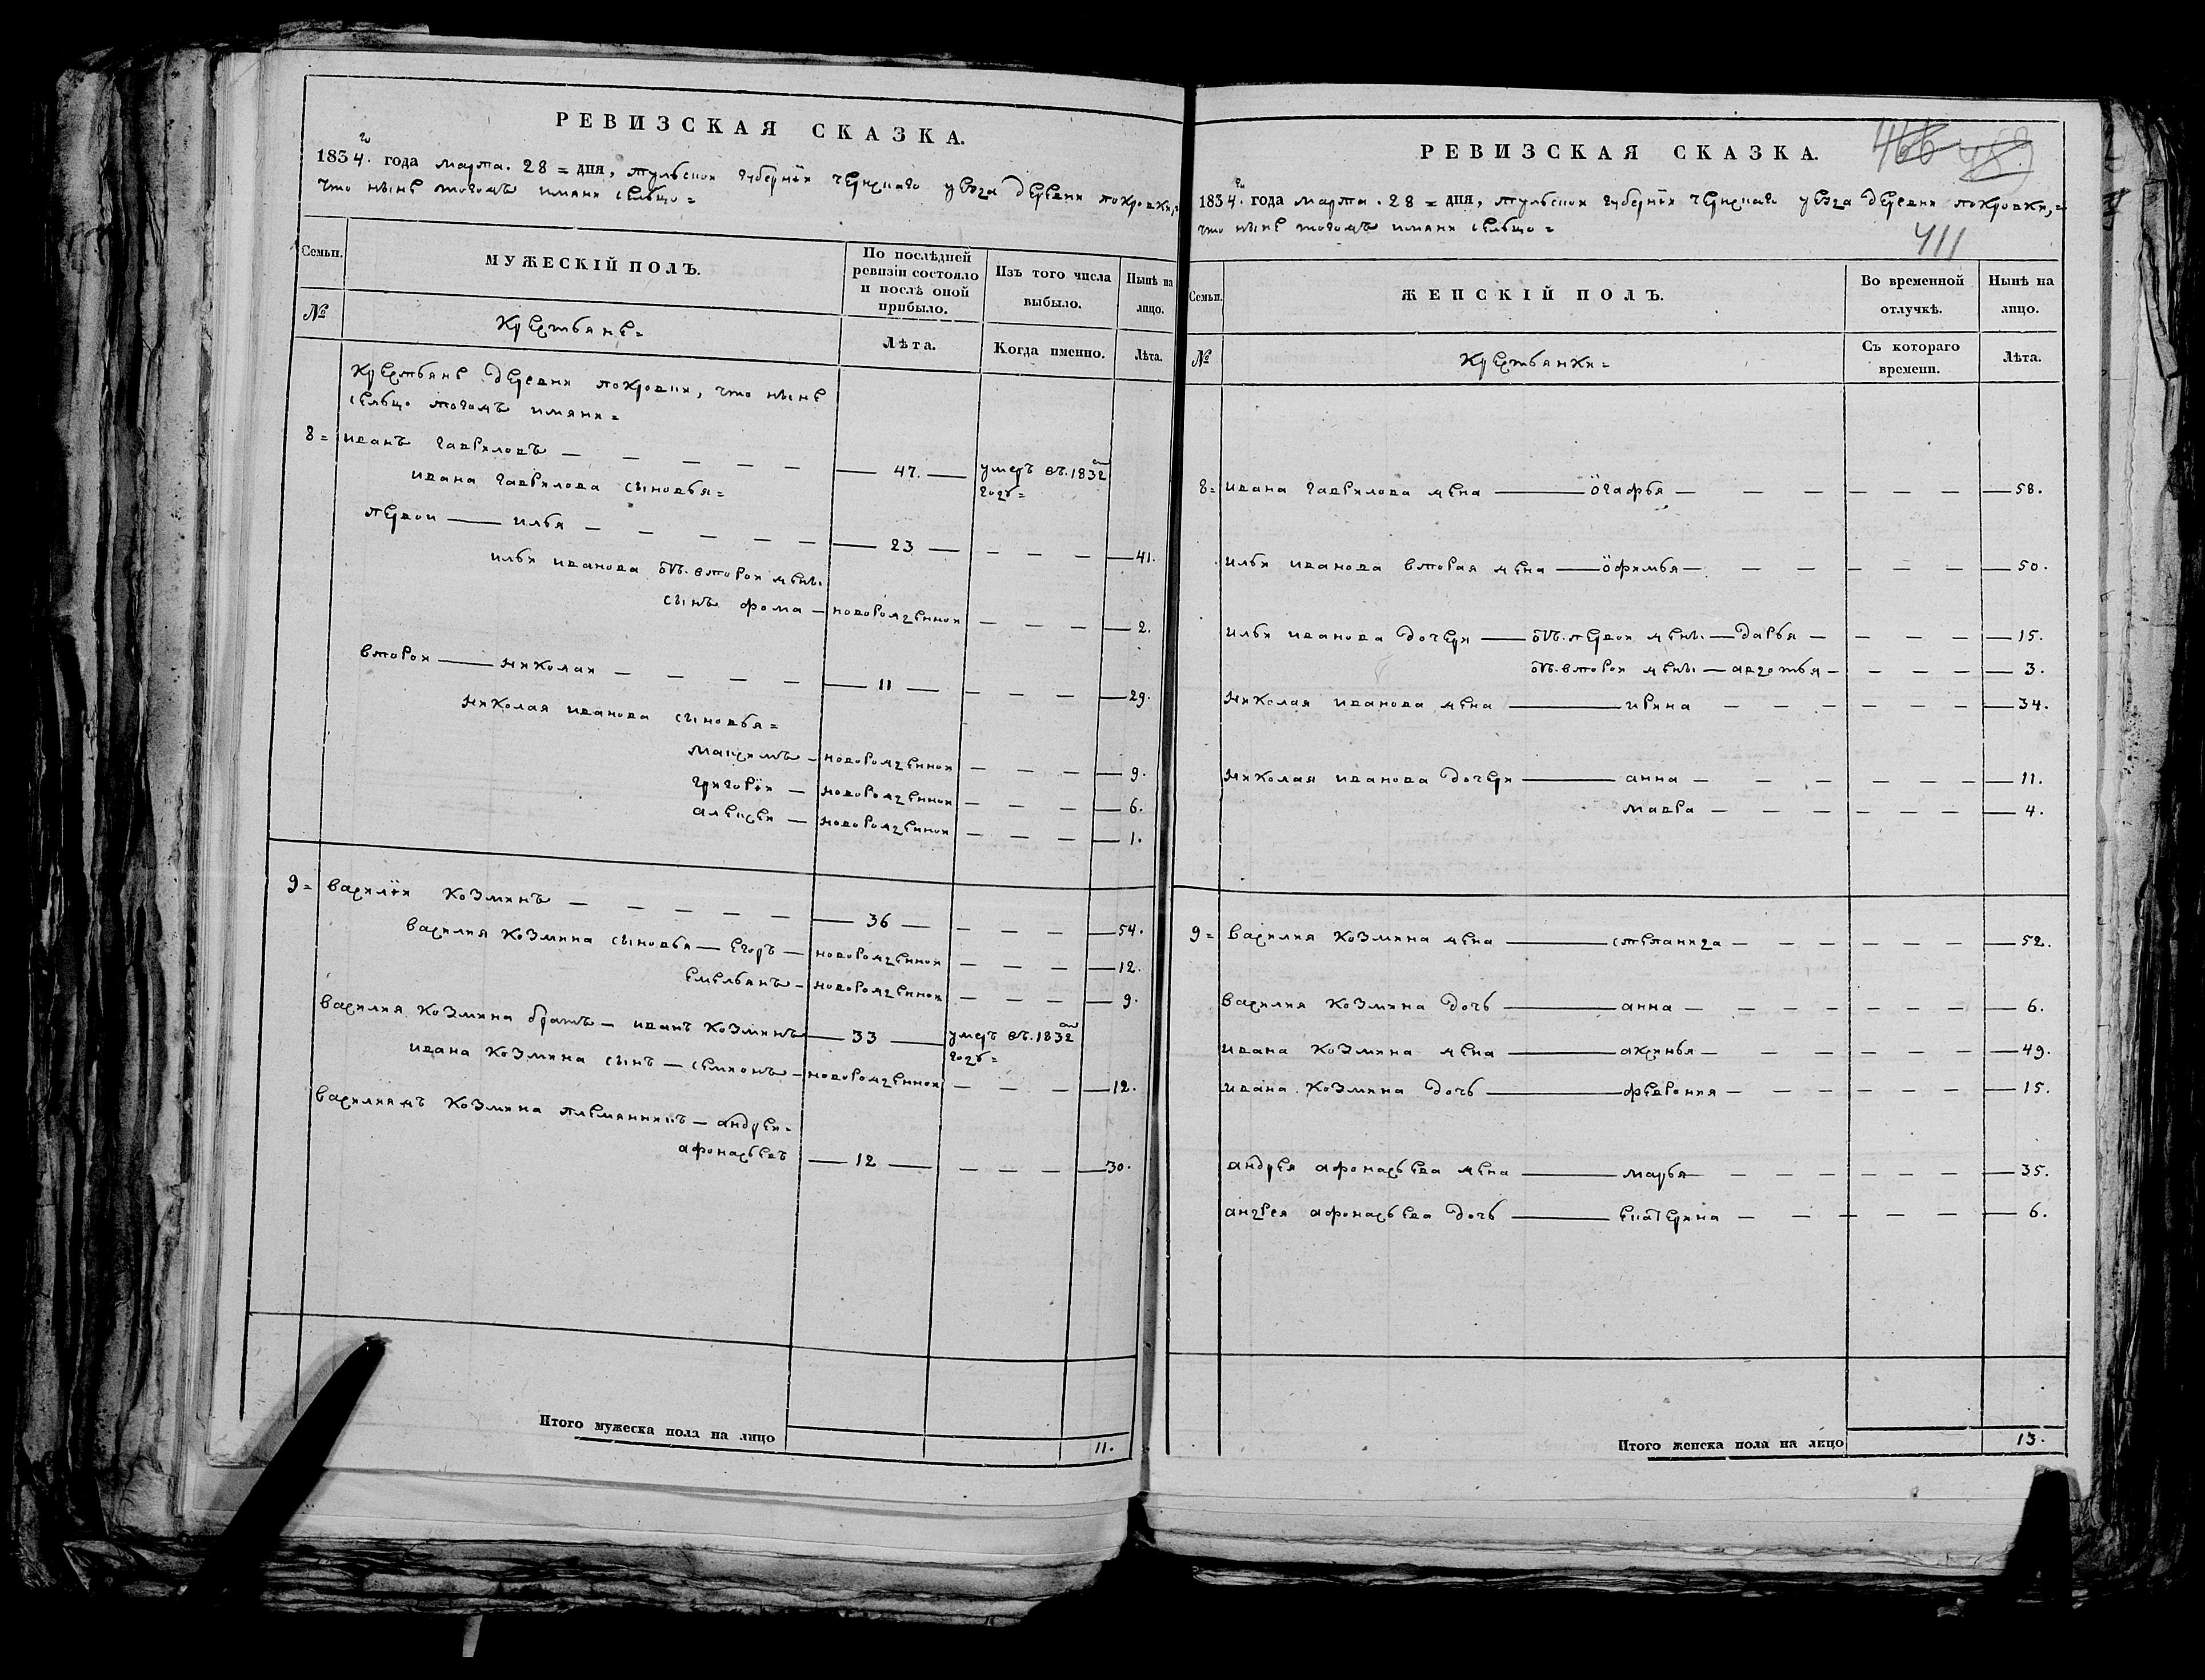 РЕВИЗСКАЯ СКАЗКА.
1834.го года марта. 28 = дня, тульской губернїи чернскаго уѣзда деревни покровки,=
что нынѣ тогожъ имяни сельцо=
Семьи.
МУЖЕСКІЙ ПОЛЪ.
По послѣдней ревизіи состояло и послѣ оной прибыло.
Изъ того числа выбыло.
Нынѣ на лицо.
№
Крестьяне=
Лѣта.
Когда именно.
Лѣта.
Крестьяне деревни покровки, что нынѣ
сельцо тогожъ имяни=
8= иванъ гавриловъ — 47. — умеръ въ.1832м годѣ=
ивана гаврилова сыновья=
первой — илья — 23 — 41.
ильи иванова ѿ.второй жены
сынъ фома — новорожденной — 2.
второй — николай — 11 — 29.
николая иванова сыновья=
максимъ — новорожденной — 9.
григорїй — новорожденной — 6.
алексей — новорожденной — 1.
9= василїй козминъ — 36 — 54.
василия козмина сыновья — егоръ — новорожденной — 12.
емельянъ — новорожденной — 9.
василия козмина братъ — иванъ козминъ — 33 — умеръ въ.1832м годѣ=
ивана козмина сынъ — семионъ — новорожденной — 12.
василияжъ козмина племянникъ — андрей=
афонасьевъ — 12 — 30.
Итого мужеска пола на лицо 11.
РЕВИЗСКАЯ СКАЗКА.
466
411
1834.го года марта. 28 = дня, тульской губернїи чернскаго уѣзда деревни покровки,=
что нынѣ тогожъ имяни сельцо=
Семьи.
ЖЕНСКІЙ ПОЛЪ.
Во временной отлучкѣ.
Нынѣ на лицо.
№
Крестьянки=
Съ котораго времени.
Лѣта.
8= ивана гаврилова жена — огафья — 58.
ильи иванова вторая жена — офимья — 50.
ильи иванова дочери — ѿ.первой жены — дарья — 15.
ѿ.второй жены — авдотья — 3.
николая иванова жена — ирина — 34.
николая иванова дочери — анна — 11.
мавра — 4.
9= василия козмина жена — степанида — 52.
василия козмина дочь — анна — 6.
ивана козмина жена — аксинья — 49.
ивана козмина дочь — феврония — 15.
андрея афонасьева жена — марья — 35.
андрея афонасьева дочь — екатерина — 6.
Итого женска пола на лицо 13.